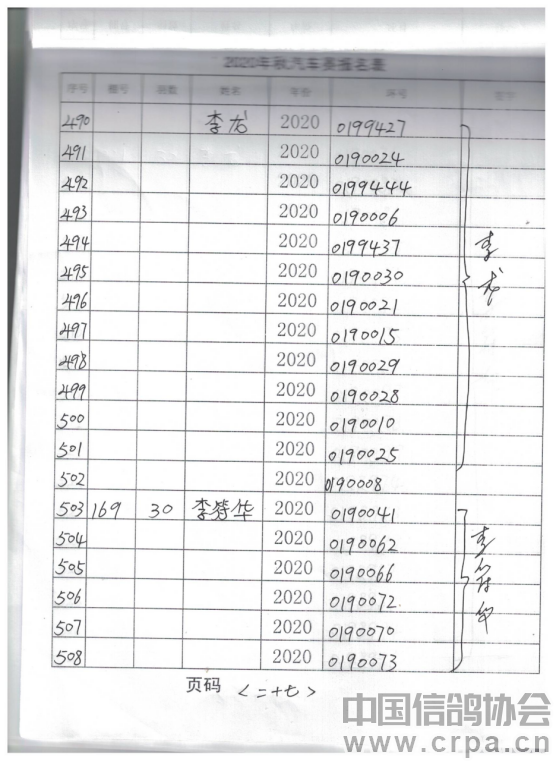 2020年秋汽车赛报名表
序号 棚号 羽数 姓名 年份 环号 签字
490 李龙 2020 0199427
491 2020 0190024
492 2020 0199444
493 2020 0190006
494 2020 0199437
李龙
495 2020 0190030
496 2020 0190021
497 2020 0190015
498 2020 0190029
499 2020 0190028
500 2020 0190010
501 2020 0190025
502 2020 0190008
503 169 30 2020 0190041
504 2020 0190062
505 2020 0190066
506 2020 0190072
507 2020 0190070
508 2020 0190073
页码 <二十七>
中国信鸽协会
www.crpa.cn